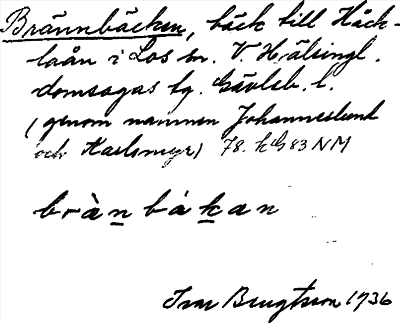 Brännbäcken, bäck till Häck-
laån i Los sn. V. Hälsingl.
domsagas tg. Gävleb. l.
(genom namnen Johanneslund
och Karlsmyr) 78. k G 83 NM
brànbákan
Ivar Bengtsson 1936